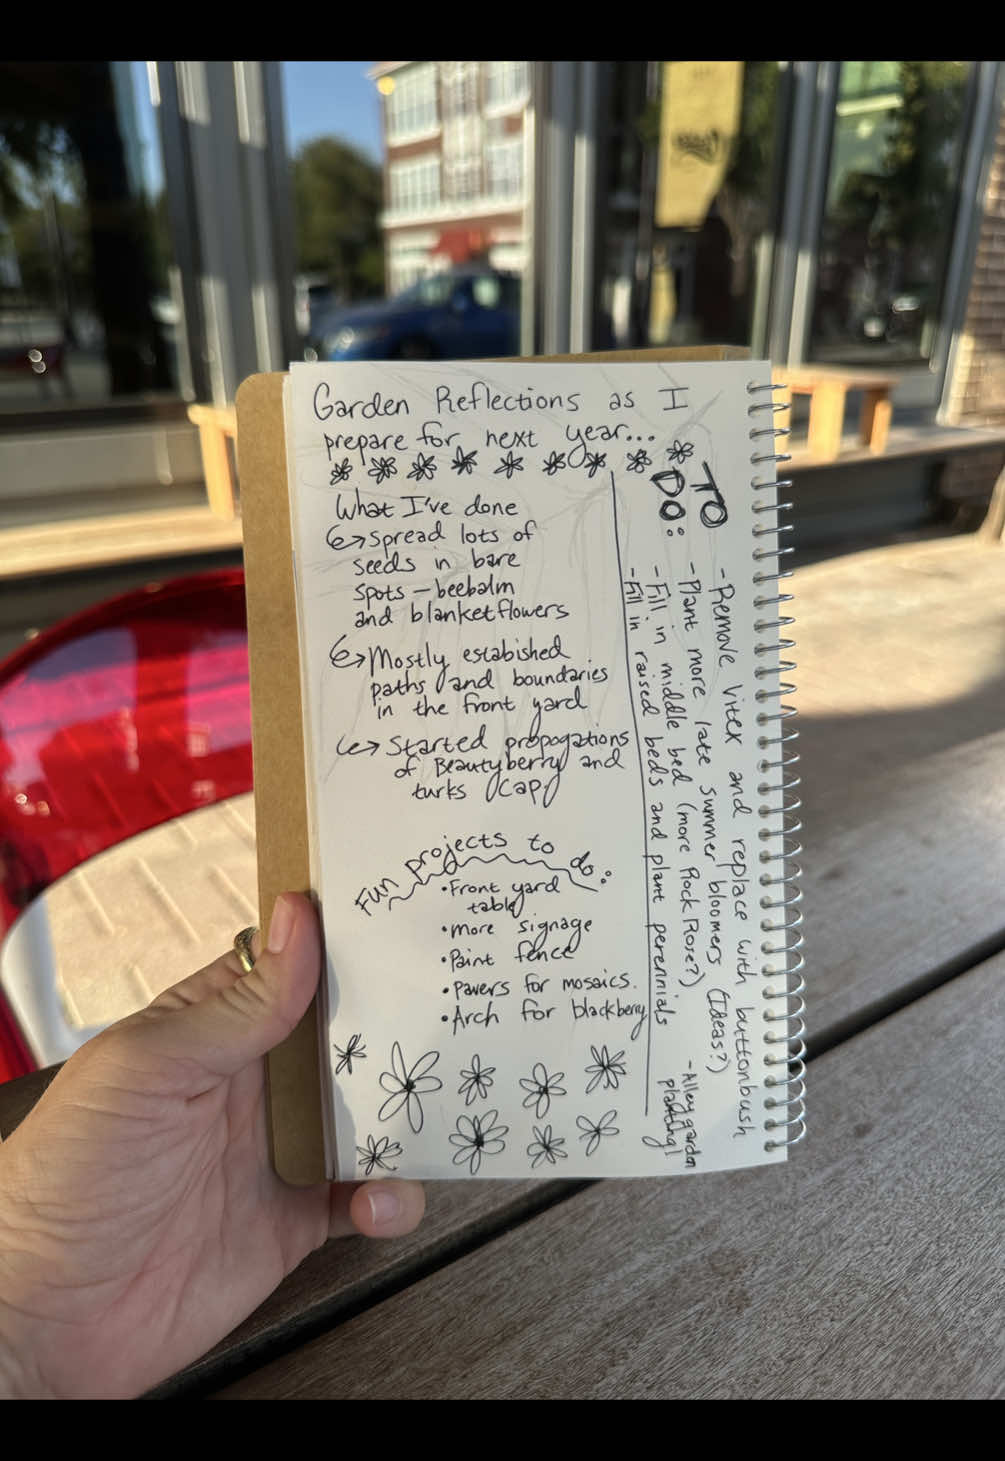 Garden Reflections as I
prepare for next year...
What I've done
Spread lots of
seeds in bare
spots – beebalm
and blanketflowers
Mostly estabished
paths and boundaries
in the front yard
Started propogations
of Beautyberry and
turks cap
Fun projects to do:
• Front yard
table
• more signage
• Paint fence
• pavers for mosaics.
• Arch for blackberry
TO
DO:
- Remove vitex and replace with buttonbush
- Plant more late summer bloomers (Ideas?)
- Fill in middle bed (more Rock Rose?)
- Fill in raised beds and plant perennials
- Alley garden
planting!